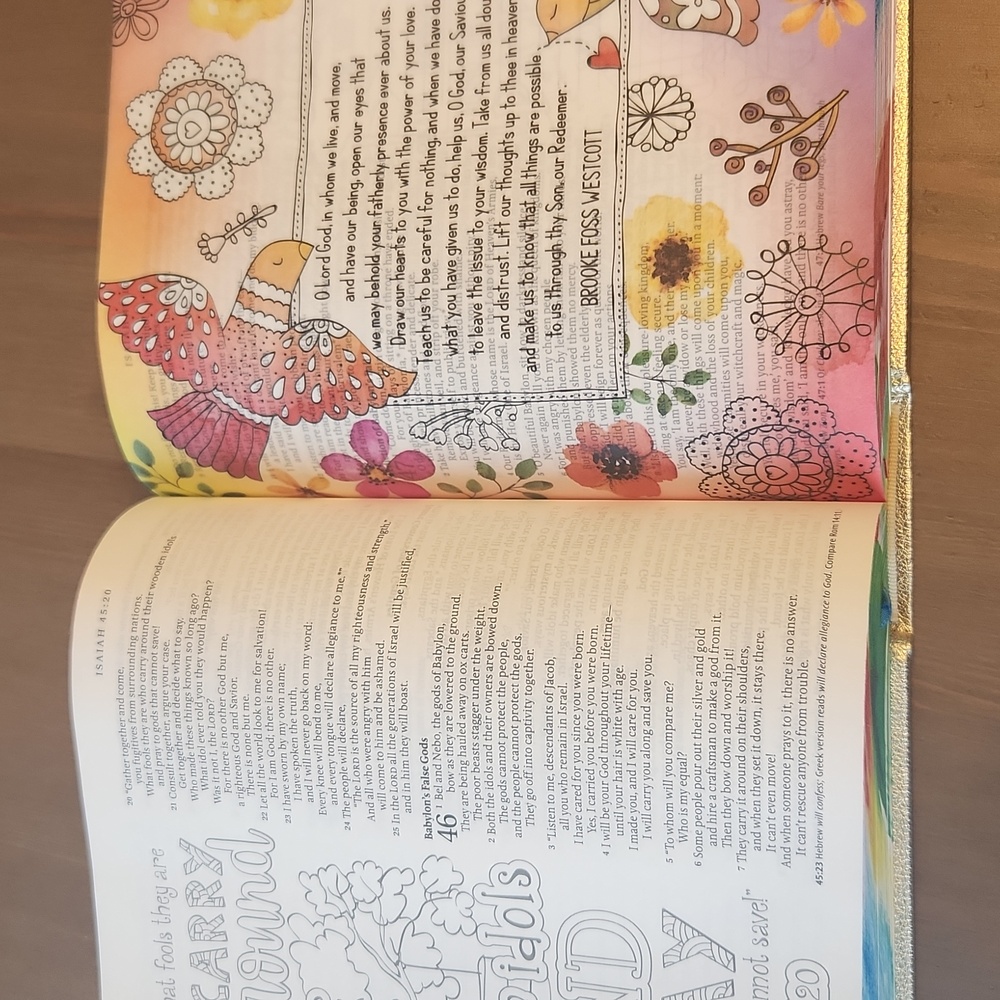 ISAIAH 45:20
hat fools they are
CARRY
around
idols
ND
AY
nnot save!"
20
20 "Gather together and come,
you fugitives from surrounding nations.
What fools they are who carry around their wooden idols
and pray to gods that cannot save!
21 Consult together, argue your case.
Get together and decide what to say.
Who made these things known so long ago?
What idol ever told you they would happen?
Was it not I, the LORD?
For there is no other God but me,
a righteous God and Savior.
There is none but me.
22 Let all the world look to me for salvation!
For I am God; there is no other.
23 I have sworn by my own name;
I have spoken the truth,
and I will never go back on my word:
Every knee will bend to me,
and every tongue will declare allegiance to me.*"
24 The people will declare,
"The LORD is the source of all my righteousness and strength."
And all who were angry with him
will come to him and be ashamed.
25 In the LORD all the generations of Israel will be justified,
and in him they will boast.
Babylon's False Gods
46 1 Bel and Nebo, the gods of Babylon,
bow as they are lowered to the ground.
They are being hauled away on ox carts.
The poor beasts stagger under the weight.
2 Both the idols and their owners are bowed down.
The gods cannot protect the people,
and the people cannot protect the gods.
They go off into captivity together.
3 "Listen to me, descendants of Jacob,
all you who remain in Israel.
I have cared for you since you were born.
Yes, I carried you before you were born.
4 I will be your God throughout your lifetime—
until your hair is white with age.
I made you, and I will care for you.
I will carry you along and save you.
5 "To whom will you compare me?
Who is my equal?
6 Some people pour out their silver and gold
and hire a craftsman to make a god from it.
Then they bow down and worship it!
7 They carry it around on their shoulders,
and when they set it down, it stays there.
It can't even move!
And when someone prays to it, there is no answer.
It can't rescue anyone from trouble.
45:23 Hebrew will confess; Greek version reads will declare allegiance to God. Compare Rom 14:11.
O Lord God, in whom we live, and move,
and have our being, open our eyes that
we may behold your fatherly presence ever about us.
Draw our hearts to you with the power of your love.
Teach us to be careful for nothing, and when we have do
what you have given us to do, help us, O God, our Saviou
to leave the issue to your wisdom. Take from us all dou
and distrust. Lift our thoughts up to thee in heaven
and make us to know that all things are possible
to us through thy Son, our Redeemer.
BROOKE FOSS WESTCOTT